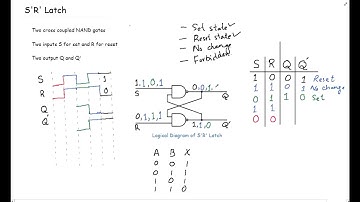 S'R' Latch
Two cross coupled NAND gates
Two inputs S for set and R for reset
Two output Q and Q'
— Set state ✓
— Reset state ✓
— No change
— Forbidden
S 1
R 0
Q
Q'
1,1,0,1
S
0,0,1,
Q
0,1,1,1
R
1,1,0
Q'
Logical Diagram of S'R' Latch
A B X
0 0 1
0 1 1
1 0 1
1 1 0
S R Q Q'
1 0 0 1 Reset
1 1 0 1 No change
0 1 1 0 Set
1 1
0 0